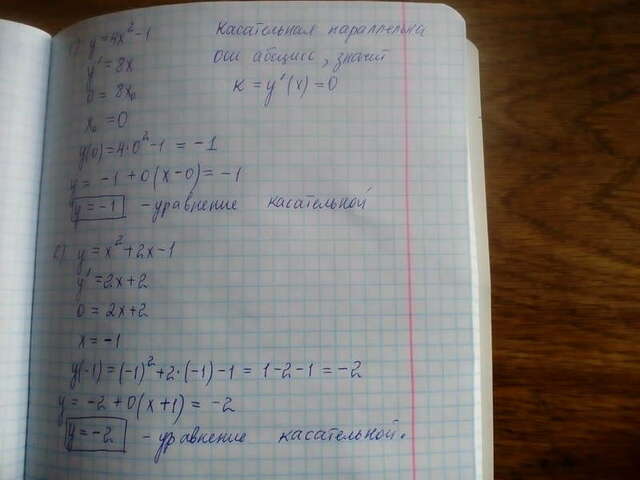 1) y = 4x² - 1
Касательная параллельна
оси абсцисс, значит
к = y'(x) = 0
y' = 8x
0 = 8x₀
x₀ = 0
y(0) = 4·0² - 1 = -1
y = -1 + 0(x - 0) = -1
y = -1 - уравнение касательной
y = x² + 2x - 1
y' = 2x + 2
0 = 2x + 2
x = -1
y(-1) = (-1)² + 2·(-1) - 1 = 1 - 2 - 1 = -2
y = -2 + 0(x + 1) = -2
y = -2 - уравнение касательной.